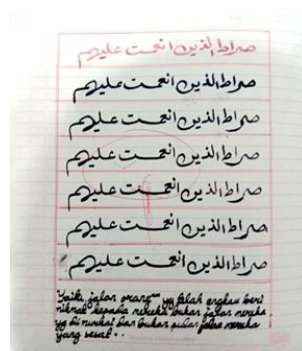 صراط الذين انعمت عليهم
صراط الذين انعمت عليهم
صراط الذين انعمت عليهم
صراط الذين انعمت عليهم
صراط الذين انعمت عليهم
صراط الذين انعمت عليهم
صراط الذين انعمت عليهم
Yaitu jalan orang" yg telah engkau beri
nikmat kepada mereka bukan jalan mereka
yg di murkai dan bukan pula jalan mereka
yang sesat...